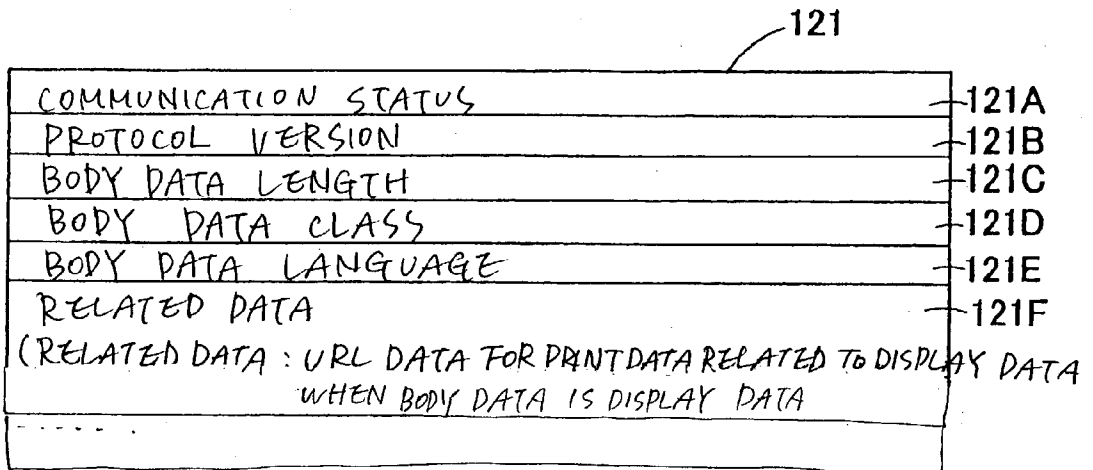 121
COMMUNICATION STATUS 121A
PROTOCOL VERSION 121B
BODY DATA LENGTH 121C
BODY DATA CLASS 121D
BODY DATA LANGUAGE 121E
RELATED DATA 121F
(RELATED DATA : URL DATA FOR PRINT DATA RELATED TO DISPLAY DATA
WHEN BODY DATA IS DISPLAY DATA